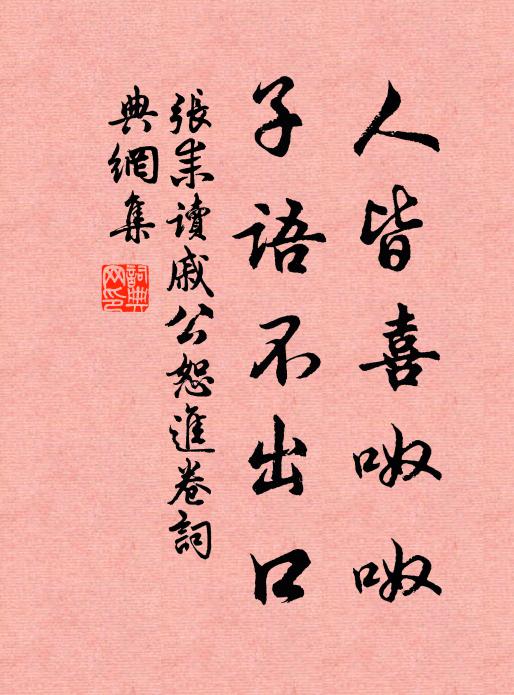 人皆喜呶呶
子語不出口
張耒讀戚公恕進卷詞
典網集
詞典
网印